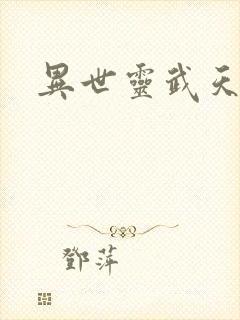 異世靈武天
鄧萍